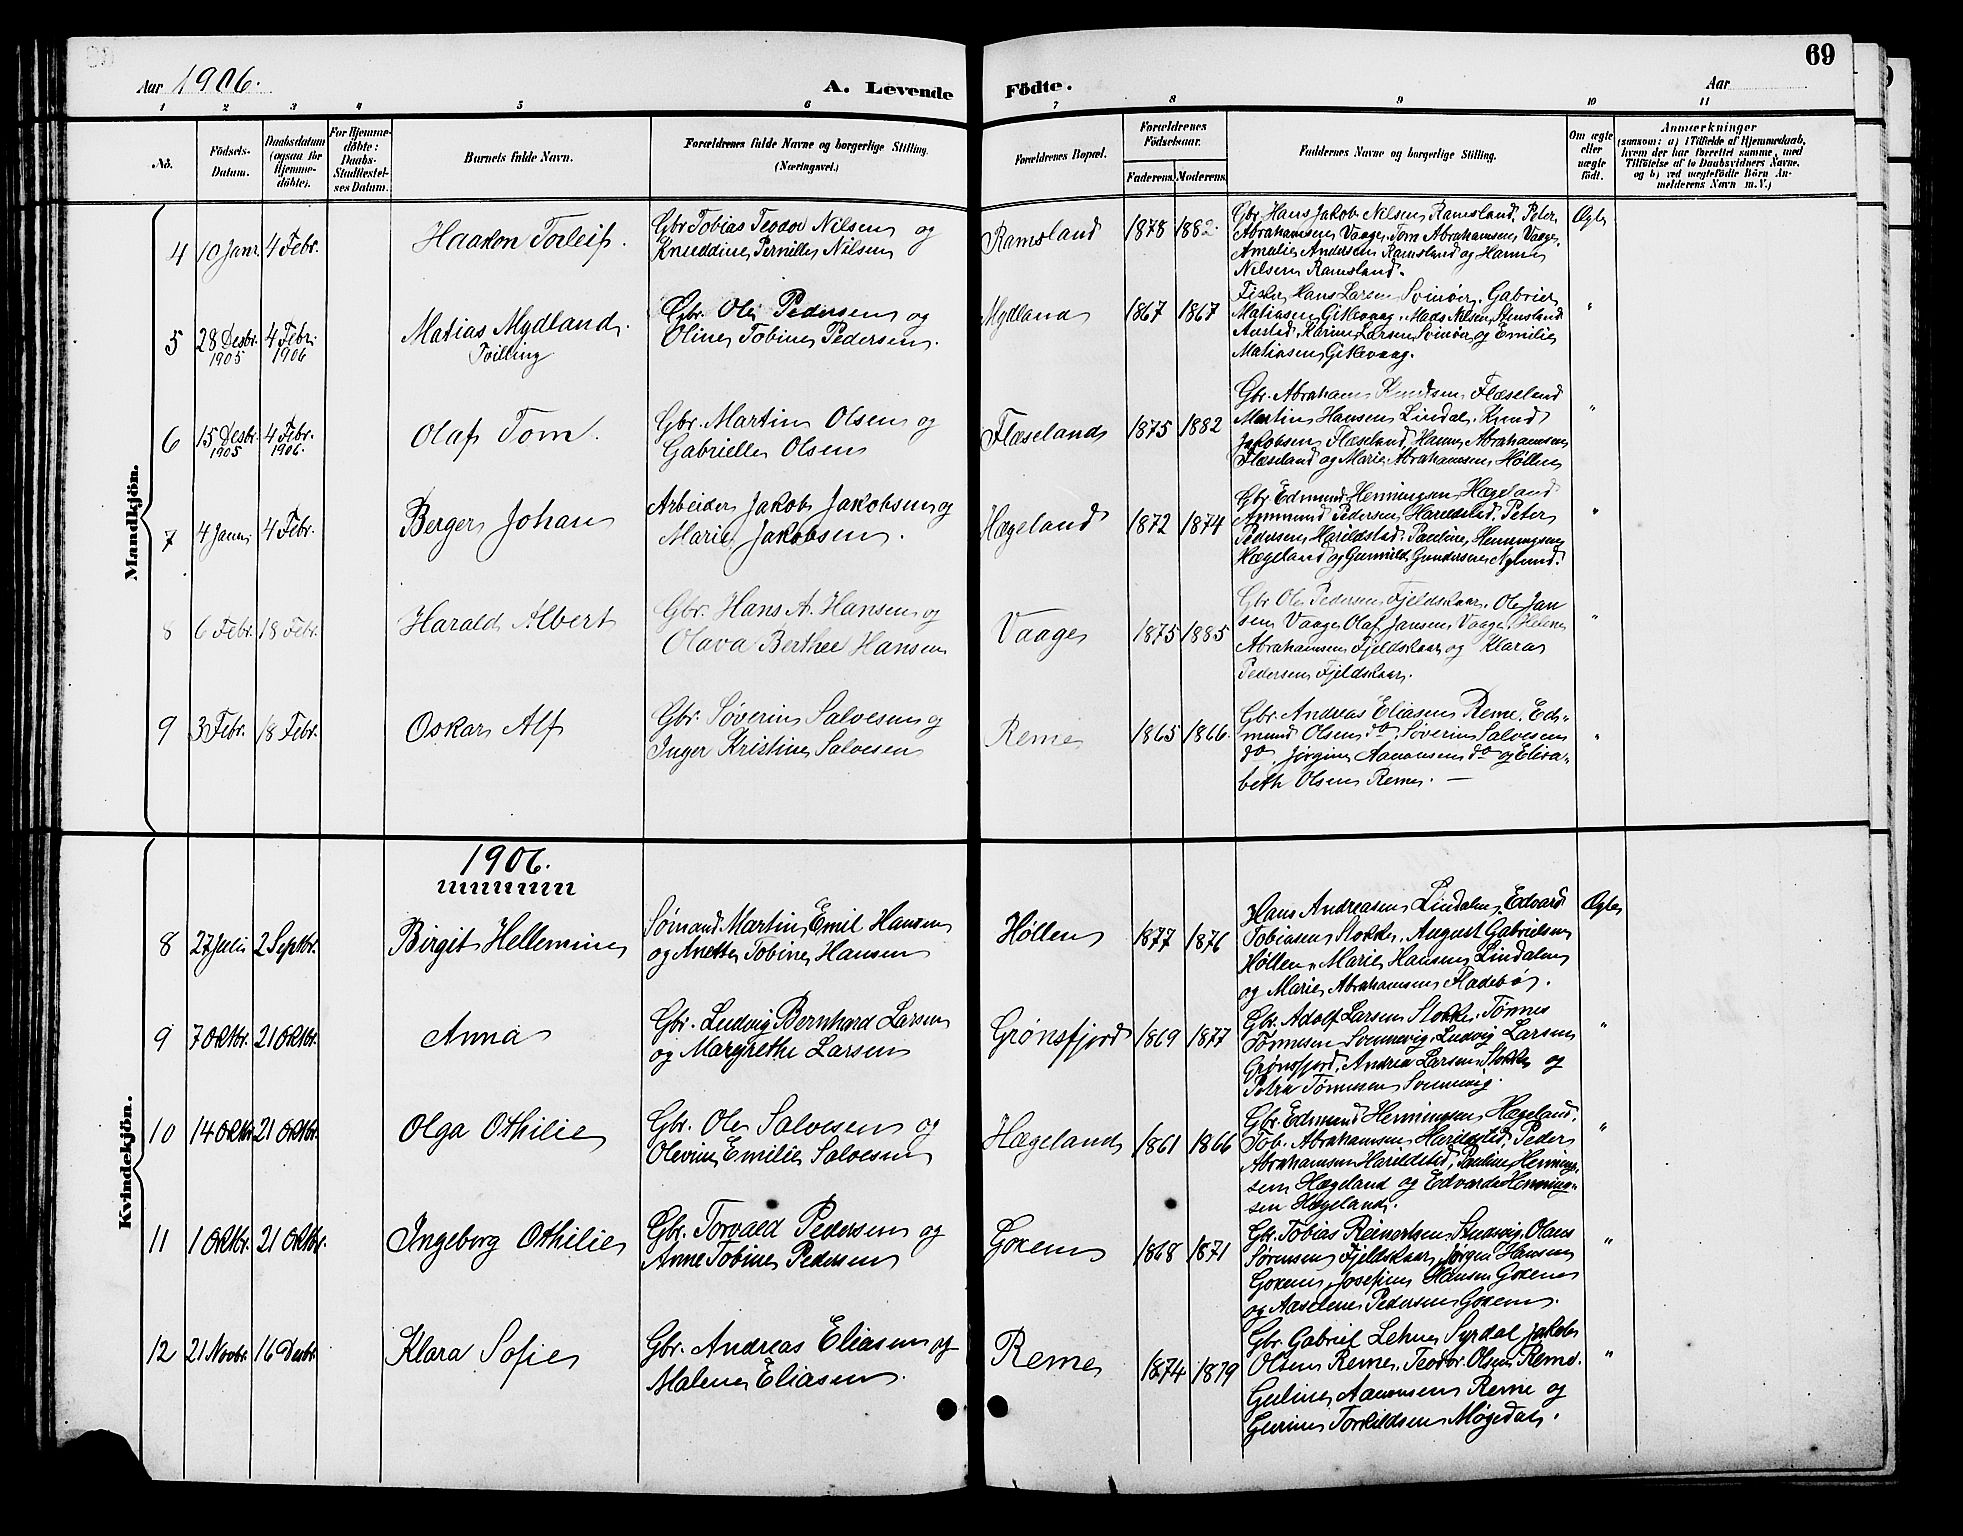 69
Aar 1906.
A. Levende Fødte.
Aar
1 2 3 4 5 6 7 8 9 10 11
No.
Födsels-
Datum.
Daabsdatum
(ogsaa for
Hjemme-
döbte).
For Hjemme-
döbte:
Daabs-
Stadfæstel-
ses Datum.
Barnets fulde Navn.
Forældrenes fulde Navne og borgerlige Stilling.
(Næringsvei.)
Forældrenes Bopæl.
Forældrenes
Födselsaar.
Faderens. Moderens.
Faddernes Navne og borgerlige Stilling.
Om ægte
eller
uægte
födt.
Anmærkninger
(saasom: a) i Tilfælde af Hjemmedaab,
hvem der har forrettet samme, med
Tilföielse af to Daabsvidners Navne,
og b) ved uægtefödte Börn An-
melderens Navn m. V.)
Mandkjön.
4 10 Janr. 4 Febr. Haakon Torleif.
Gbr. Tobias Teodor Nilsen og
Knuddine Pernille Nilsen
Ramsland 1878 1882.
Gbr. Hans Jakob Nilsen Ramsland, Peter
Abrahamsen Vaage, Tom Abrahamsen Vaage,
Amalie Andersen Ramsland og Hanne
Nilsen Ramsland.
Ægte
5 28 Desbr. 1905 4 Febr. 1906 Matias Mydland.
Tvilling
Gbr. Ole Pedersen og
Oline Tobine Pedersen.
Mydland 1867 1867
Fisker Hans Larsen Svinør, Gabriel
Matiasen Gitlevaag, Mads Nilsen Stensland
Karine Larsen Svinør og Emilie
Matiasen Gitlevaag.
"
6 15 Desbr. 1905 4 Febr. 1906. Olaf Tom.
Gbr. Martin Olsen og
Gabrielle Olsen
Flæseland 1875 1882
Gbr. Abraham Knudsen Flæseland
Martin Hansen Lindal, Knud
Jakobsen Flæseland, Hanne Abrahamsen
Flæseland og Marie Abrahamsen Høllen
"
7 4 Janr. 4 Febr. Berger Johan
Arbeider Jakob Jakobsen og
Marie Jakobsen.
Hægeland 1872 1874
Gbr. Edmund Henningsen Hægeland
Ammund Pedersen Harildstad, Peter
Pedersen Harildstad, Pauline Henningsen
Hægeland og Gunvild Gundersen Nglund.
"
8 6 Febr. 18 Febr. Harald Albert
Gbr. Hans A. Hansen og
Olava Berthee Hansen
Vaage 1875 1885
Gbr Ole Pedersen Fjeldskaar, Ole Jan
sen Vaage, Olaf Jansen Vaage, Helene
Abrahamsen Fjeldskaar og Klara
Pedersen Fjeldskaar.
"
9 3 Febr. 18 Febr. Oskar Alf
Gbr. Søverin Salvesen og
Inger Kristine Salvesen
Reme 1865 1866.
Gbr. Andreas Eliasen Reme, Ed-
mund Olsen do, Søverin Salvesen
do, Jørgine Aanonsen do og Elisa-
beth Olsen Reme. —
"
Kvindekjön.
1906.
8 27 Juli 2 Septbr. Birgit Hellemine
Sømand Martin Emil Hansen
og Anette Tobine Hansen
Høllen 1877 1876
Hans Andreasen Lindalen, Edvard
Tobiasen Stokke, August Gabrielsen
Høllen, Marie Hansen Lindalen
og Marie Abrahamsen Fladebø.
Ægte
9 7 Oktbr. 21 Oktbr. Anna
Gbr. Ludvig Bernhard Larsen
og Margrethe Larsen
Grønsfjord 1869 1877
Gbr. Adolf Larsen Stokke, Tønnes
Tønnesen Sonnevig, Ludvig Larsen
Grønsfjord, Andrea Larsen Stokke og
Petra Tønnesen Sonnevig.
"
10 14 Oktbr. 21 Oktbr. Olga Othilie
Gbr. Ole Salvesen og
Olevine Emilie Salvesen
Hægeland 1861 1866
Gbr. Edmund Henningsen Hægeland.
Tob. Abrahamsen Harildstid, Peder
Abrahamsen Harildstid, Pauline Henning-
sen Hægeland og Edvarda Henning-
sen Hægeland.
"
11 1 Oktbr. 21 Oktbr. Ingeborg Othilie
Gbr. Torvald Pedersen og
Anne Tobine Pedersen
Goxem 1868 1871
Gbr. Tobias Reinertsen Studvig, Olaus
Sørensen Fjeldskaar, Jørgen Hansen
Goxem, Josefine Hansen Goxem
og Aaselene Pedersen Goxem.
"
12 21 Novbr. 16 Desbr. Klara Sofie
Gbr. Andreas Eliasen og
Malene Eliasen.
Reme 1874 1879
Gbr. Gabriel Lehne Syrdal, Jakob
Olsen Reme, Teodor Olsen Reme.
Guline Aanonsen Reme og
Gurine Torkildsen Møgedal.
"